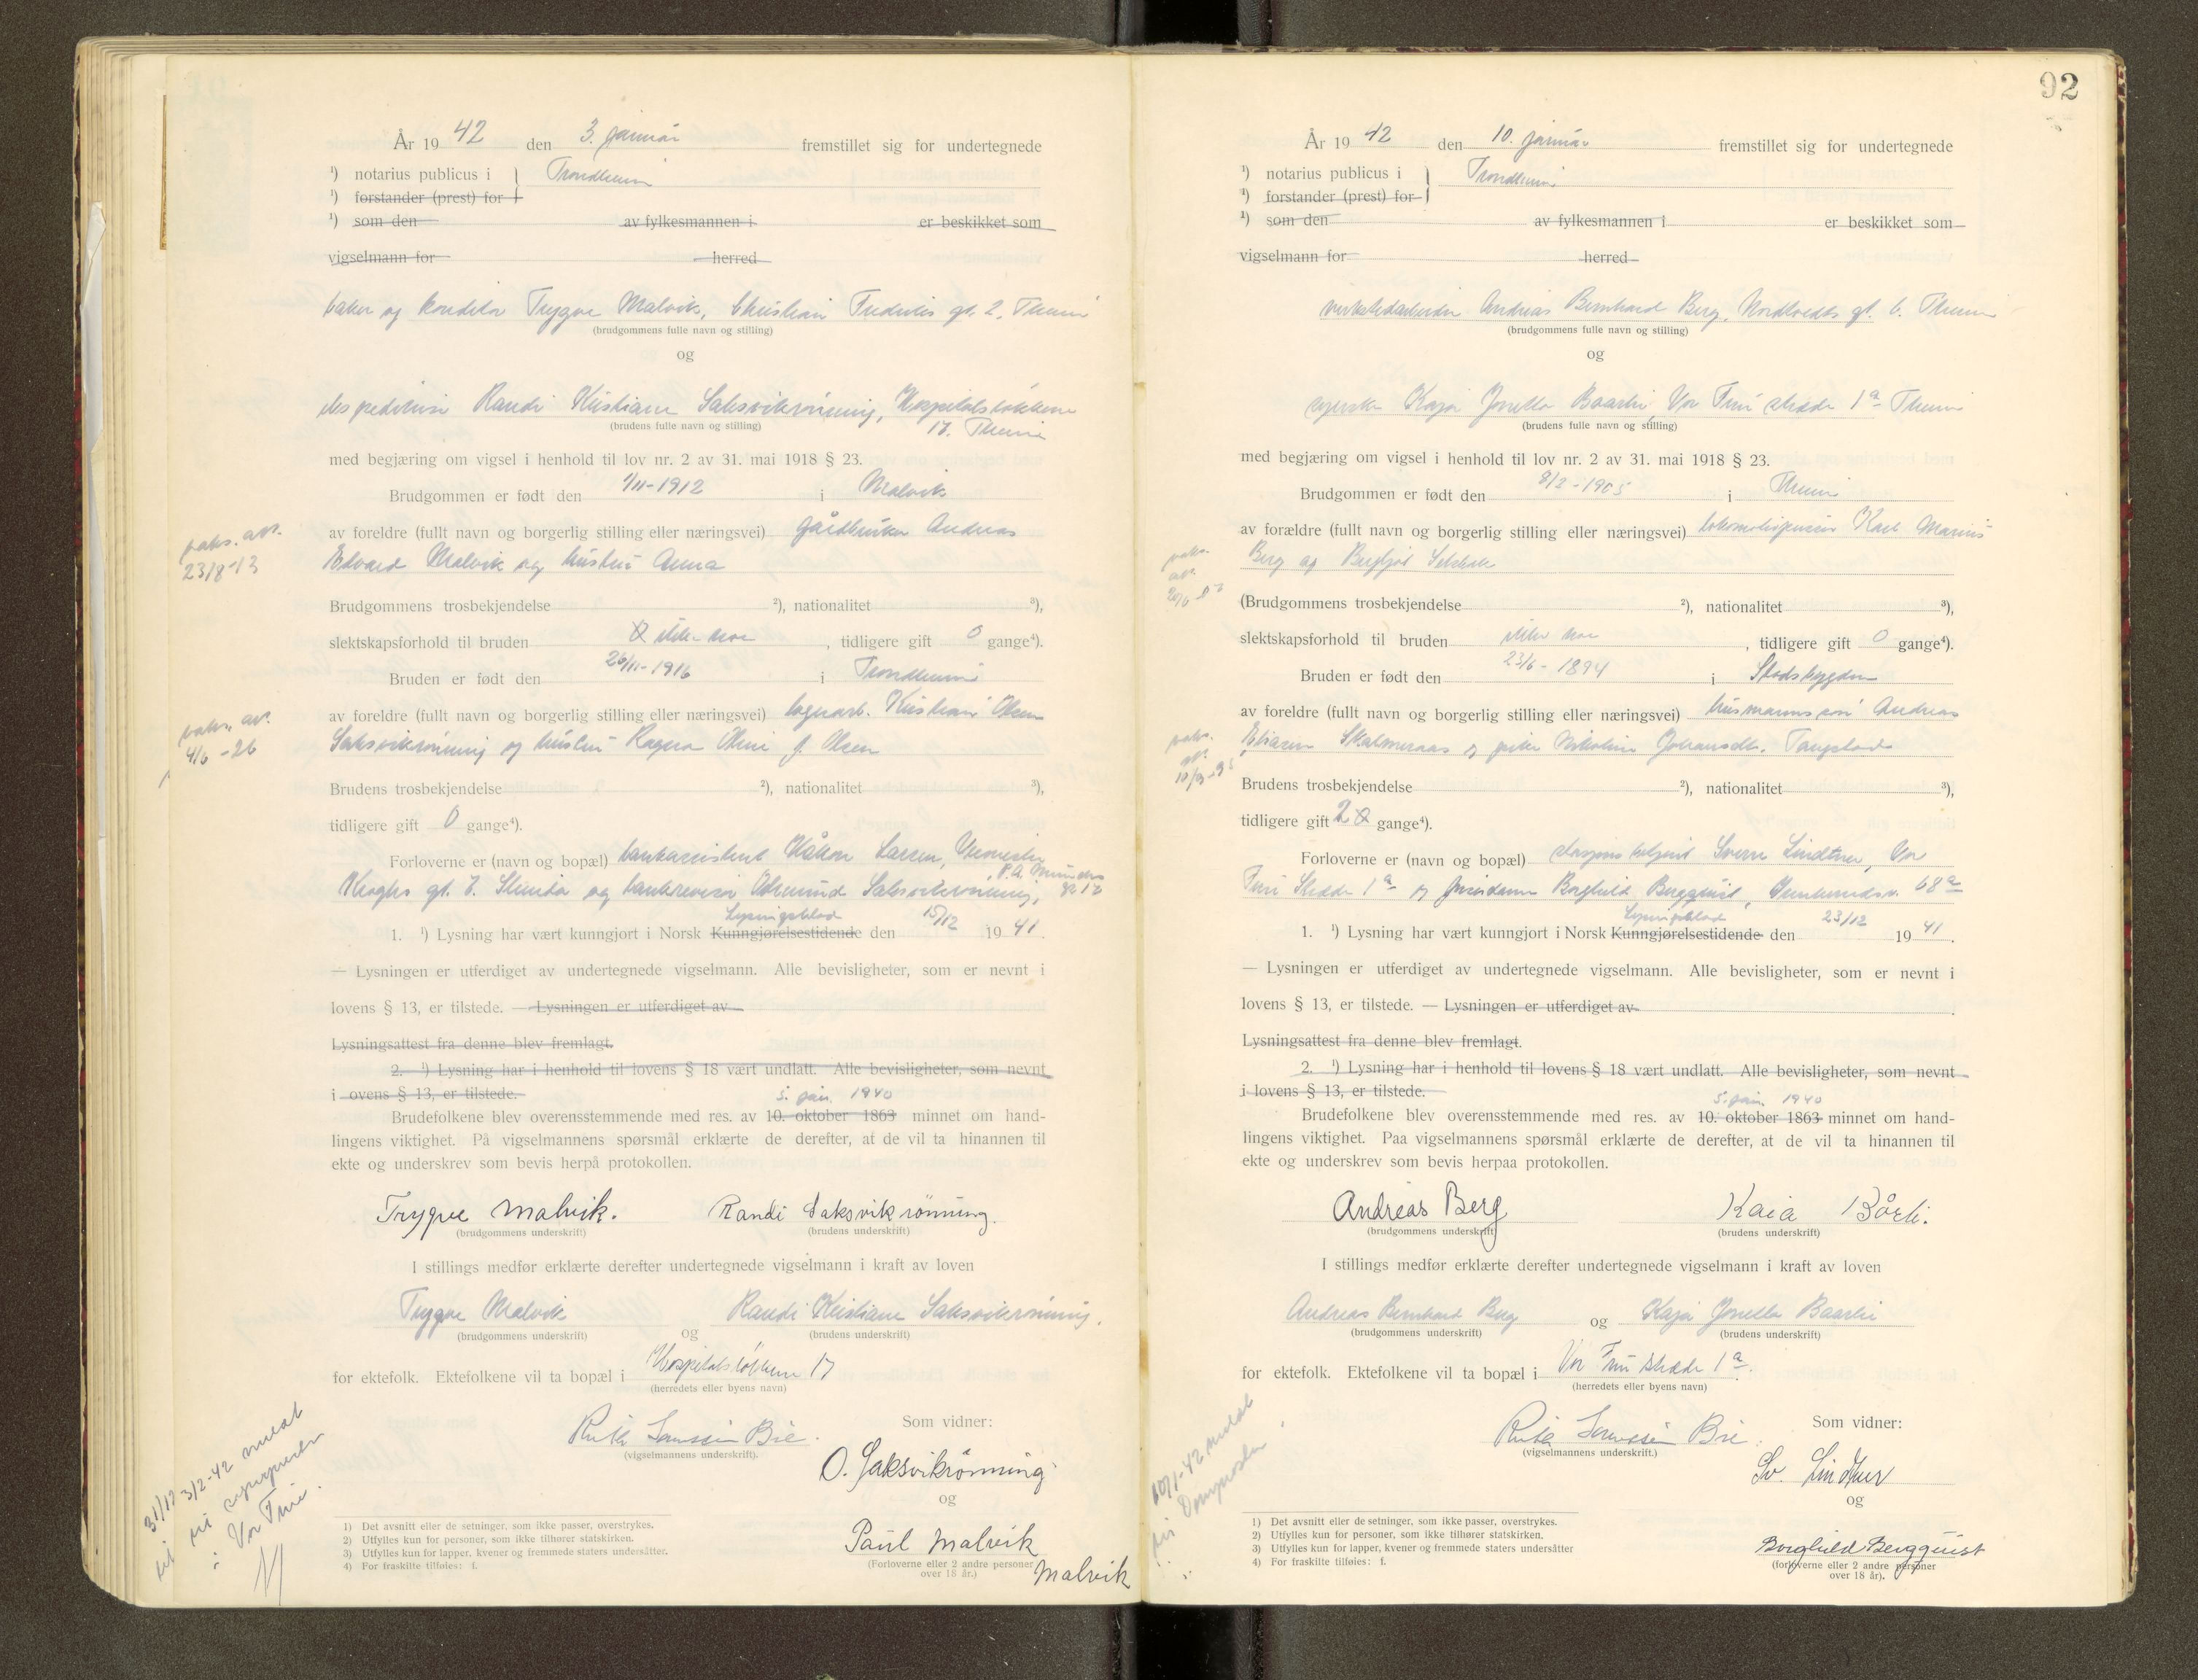 År 19 42 den 3. januar fremstillet sig for undertegnede
¹) notarius publicus i } Trondheim
¹) forstander (prest) for
¹) som den av fylkesmannen i er beskikket som
vigselmann for herred
baker og konditor Trygve Malvik, Christian Frederiks gt. 2, Theim
(brudgommens fulle navn og stilling)
og
ekspeditrise Randi Kristiane Saksvikrønning, Hospitalsløkken
17. Theim
(brudens fulle navn og stilling)
med begjæring om vigsel i henhold til lov nr. 2 av 31. mai 1918 § 23.
Brudgommen er født den 1/11-1912 i Malvik
av foreldre (fullt navn og borgerlig stilling eller næringsvei) gårdbruker Andreas
Edvard Malvik og hustru Anna
vaks. att.
23/8-13
Brudgommens trosbekjendelse ²), nationalitet ³),
slektskapsforhold til bruden ikke noe , tidligere gift 0 gange⁴).
Bruden er født den 26/11-1916 i Trondheim
av foreldre (fullt navn og borgerlig stilling eller næringsvei) lagerarb. Kristian Olsen
Saksvikrønning og hustru Ragna Oline f. Olsen
vaks. att.
4/6-26
Brudens trosbekjendelse ²), nationalitet ³),
tidligere gift 0 gange⁴).
Forloverne er (navn og bopæl) bankassistent Håkon Larsen,
Kroghs gt. 8. Strinda og bankrevisor Saksvikrønning, P.A. Munchs gt 12
Lysingsblad
1. ¹) Lysning har vært kunngjort i Norsk Kunngjørelsestidende den 15/12 19 41.
— Lysningen er utferdiget av undertegnede vigselmann. Alle bevisligheter, som er nevnt i
lovens § 13, er tilstede. — Lysningen er utferdiget av
Lysningsattest fra denne blev fremlagt.
2. ¹) Lysning har i henhold til lovens § 18 vært undlatt. Alle bevisligheter, som nevnt
i ovens § 13, er tilstede.
5. jan. 1940
Brudefolkene blev overensstemmende med res. av 10. oktober 1863 minnet om hand-
lingens viktighet. På vigselmannens spørsmål erklærte de derefter, at de vil ta hinannen til
ekte og underskrev som bevis herpå protokollen.
Trygve Malvik. Randi Saksvikrönning.
(brudgommens underskrift) (brudens underskrift)
I stillings medfør erklærte derefter undertegnede vigselmann i kraft av loven
Trygve Malvik og Randi Kristiane Saksvikrønning.
(brudgommens underskrift) (brudens underskrift)
for ektefolk. Ektefolkene vil ta bopæl i Hospitalsløkken 17
(herredets eller byens navn)
Som vidner:
(vigselmannens underskrift).
O. Saksvikrönning
og
Paul Malvik
Malvik
(Forloverne eller 2 andre personer
over 18 år.)
31/12 3/2-42 meldt
til sognepresten
i Vor Frue.
1) Det avsnitt eller de setninger, som ikke passer, overstrykes.
2) Utfylles kun for personer, som ikke tilhører statskirken.
3) Utfylles kun for lapper, kvener og fremmede staters undersåtter.
4) For fraskilte tilføies: f.
92
År 19 42 den 10. januar fremstillet sig for undertegnede
¹) notarius publicus i } Trondheim
¹) forstander (prest) for
¹) som den av fylkesmannen i er beskikket som
vigselmann for herred
verkstedarbeider Andreas Bernhard Berg, Nordtvedts gt. 6. Theim
(brudgommens fulle navn og stilling)
og
syerske Kaja Jonetta Baarli, Vor Frue stræde 1ª Theim
(brudens fulle navn og stilling)
med begjæring om vigsel i henhold til lov nr. 2 av 31. mai 1918 § 23.
Brudgommen er født den 8/2-1905 i Theim
av forældre (fullt navn og borgerlig stilling eller næringsvei) Karl Marius
Berg og Bergljot
vaks.
att.
(Brudgommens trosbekjendelse ²), nationalitet ³),
slektskapsforhold til bruden ikke noe , tidligere gift 0 gange⁴).
Bruden er født den 23/6-1894 i Stadsbygden
av foreldre (fullt navn og borgerlig stilling eller næringsvei) husmannssønn Andreas
Eliasen og pike Nikoline Johansdtr.
vaks.
att.
Brudens trosbekjendelse ²), nationalitet ³),
tidligere gift 2 0 gange⁴).
Forloverne er (navn og bopæl) Sverre Lindtner, Vor
Frue Stræde 1ª og Borghild Bergquist, 68ª
Lysingsblad
1. ¹) Lysning har vært kunngjort i Norsk Kunngjørelsestidende den 23/12 19 41.
— Lysningen er utferdiget av undertegnede vigselmann. Alle bevisligheter, som er nevnt i
lovens § 13, er tilstede. — Lysningen er utferdiget av
Lysningsattest fra denne blev fremlagt.
2. ¹) Lysning har i henhold til lovens § 18 vært undlatt. Alle bevisligheter, som nevnt
i lovens § 13, er tilstede.
5. jan. 1940
Brudefolkene blev overensstemmende med res. av 10. oktober 1863 minnet om hand-
lingens viktighet. Paa vigselmannens spørsmål erklærte de derefter, at de vil ta hinannen til
ekte og underskrev som bevis herpaa protokollen.
Andreas Berg Kaia Bårli.
(brudgommens underskrift) (brudens underskrift)
I stillings medfør erklærte derefter undertegnede vigselmann i kraft av loven
Andreas Bernhard Berg og Kaja Jonetta Baarli
(brudgommens underskrift) (brudens underskrift)
for ektefolk. Ektefolkene vil ta bopæl i Vor Frue stræde 1ª.
(herredets eller byens navn)
Som vidner:
(vigselmannens underskrift.)
Sv. Lindtner
og
Borghild Bergquist
(forloverne eller 2 andre personer
over 18 år).
10/1-42 meldt
til Domprosten
1) Det avsnitt eller de setninger, som ikke passer, overstrykes.
2) Utfylles kun for personer, som ikke tilhører statskirken.
3) Utfylles kun for lapper, kvener og fremmede staters undersåtter
4) For fraskilte tilføies: f.